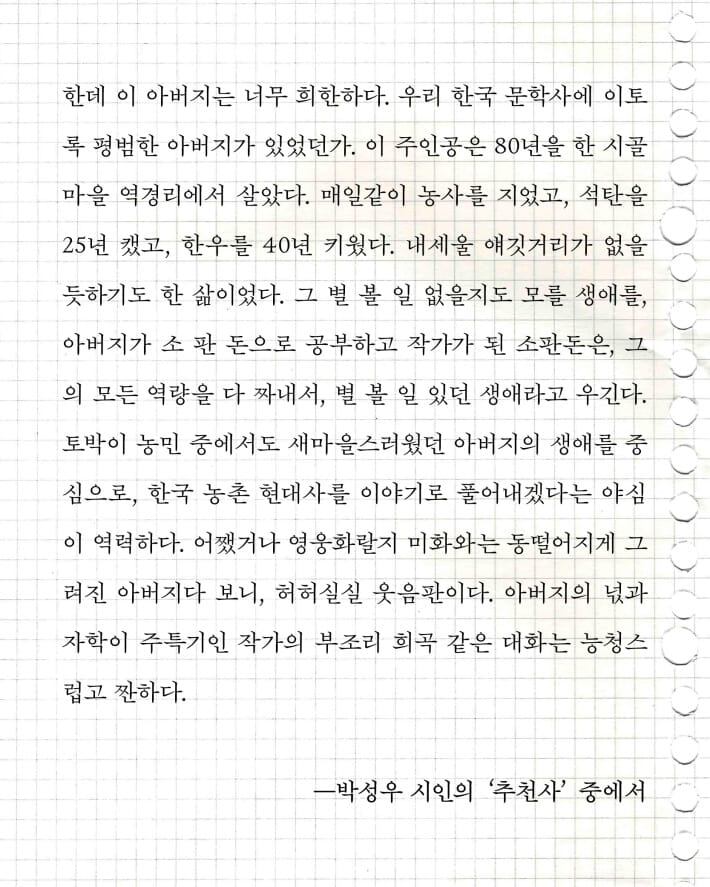 한데 이 아버지는 너무 희한하다. 우리 한국 문학사에 이토
록 평범한 아버지가 있었던가. 이 주인공은 80년을 한 시골
마을 역경리에서 살았다. 매일같이 농사를 지었고, 석탄을
25년 캤고, 한우를 40년 키웠다. 내세울 얘깃거리가 없을
듯하기도 한 삶이었다. 그 별 볼 일 없을지도 모를 생애를,
아버지가 소 판 돈으로 공부하고 작가가 된 소판돈은, 그
의 모든 역량을 다 짜내서, 별 볼 일 있던 생애라고 우긴다.
토박이 농민 중에서도 새마을스러웠던 아버지의 생애를 중
심으로, 한국 농촌 현대사를 이야기로 풀어내겠다는 야심
이 역력하다. 어쨌거나 영웅화랄지 미화와는 동떨어지게 그
려진 아버지다 보니, 허허실실 웃음판이다. 아버지의 넋과
자학이 주특기인 작가의 부조리 희곡 같은 대화는 능청스
럽고 짠하다.
—박성우 시인의 ‘추천사’ 중에서